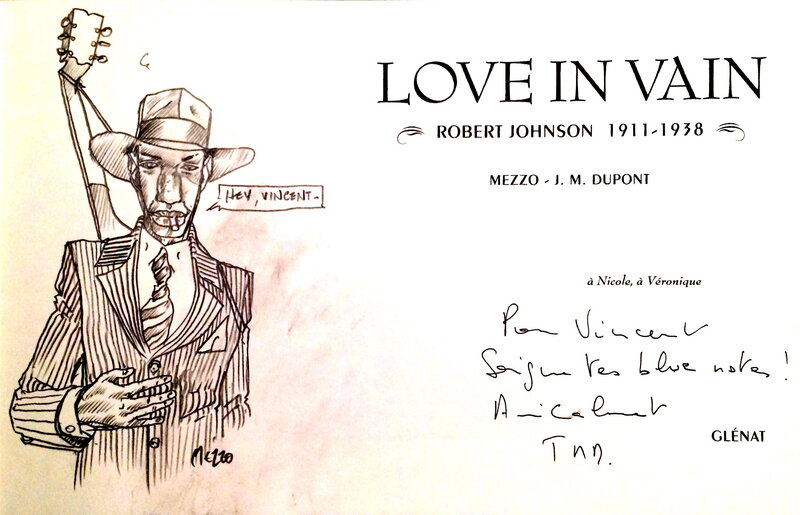 LOVE IN VAIN
ROBERT JOHNSON 1911-1938
MEZZO - J. M. DUPONT
HEY, VINCENT-
à Nicole, à Véronique
Pour Vincent
Soigne tes blue notes !
Amicalement
GLÉNAT
MEZZO